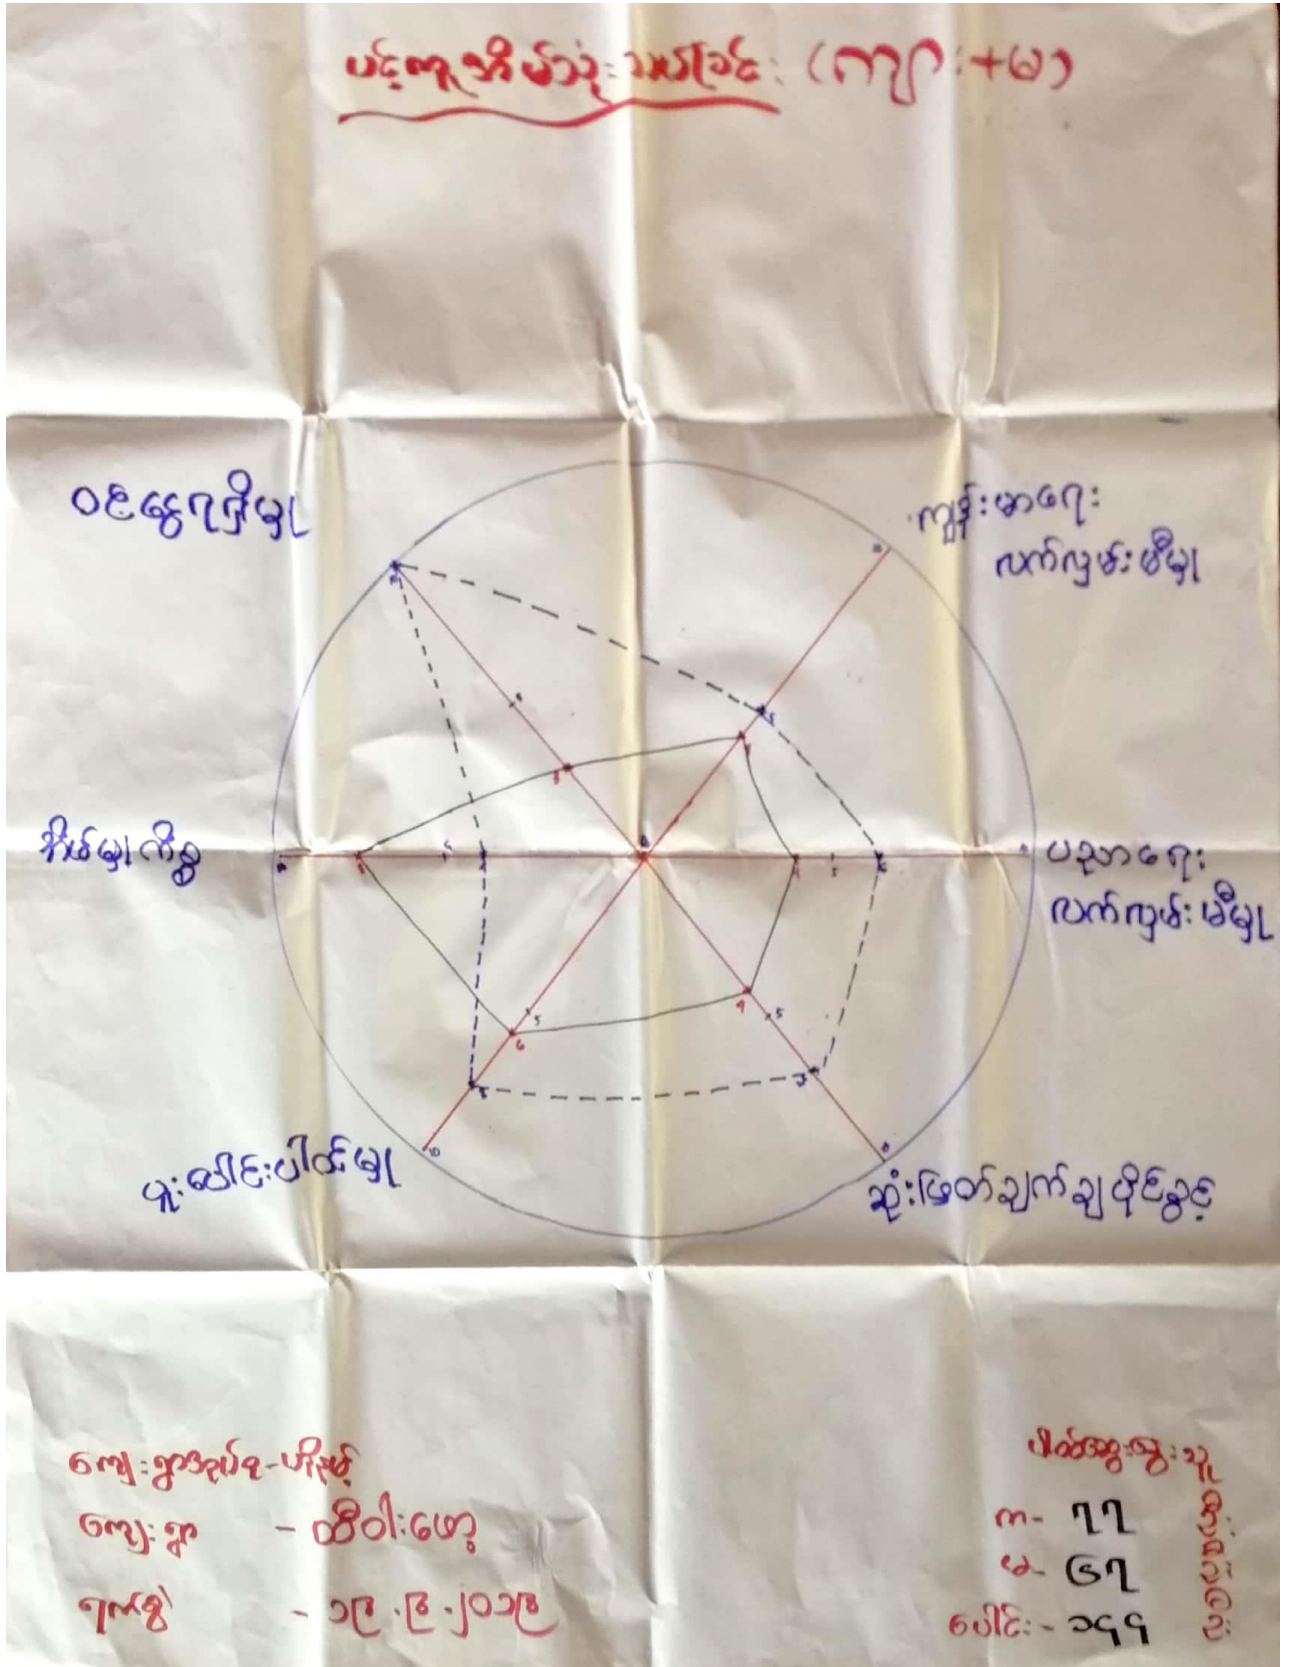 ပင့်ကူအိမ်သုံးသပ်ခြင်း (ကျား+မ)
ဝင်ငွေရရှိမှု
ကျန်းမာရေး
လက်လှမ်းမီမှု
အိမ်မှုကိစ္စ
ပညာရေး
လက်လှမ်းမီမှု
ပူးပေါင်းပါဝင်မှု
ဆုံးဖြတ်ချက်ချပိုင်ခွင့်
ကျေးရွာအုပ်စု-
ကျေးရွာ - ထီဝါးဖော့
ရက်စွဲ - ၁၉.၅.၂၀၁၉
ပါဝင်ဆွေးနွေးသူ
က- ၇၇
မ- ၆၇
ပေါင်း- ၁၄၄